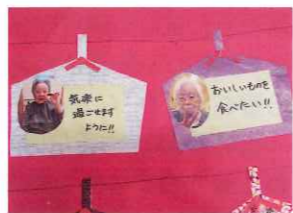 気楽に
過ごせます
ように!!
おいしいものを
食べたい!!